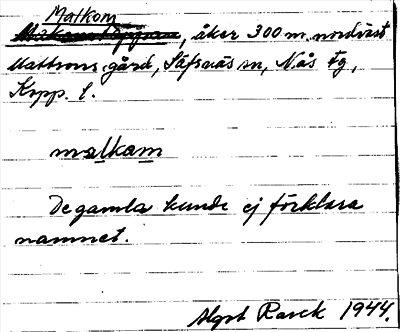 Malkom
, åker 300 m nordväst
Mattsons gård, Säfsnäs sn, Nås tg,
Kopp. l.
malkam
De gamla kunde ej förklara
namnet.
Algot Rasck 1944.